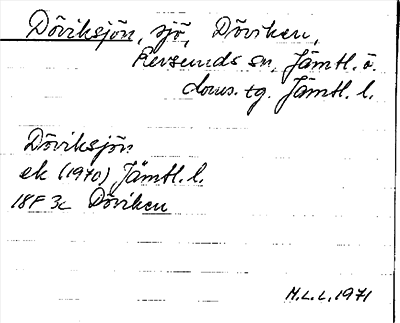 Döviksjön, sjö, Döviken,
Revsunds sn, Jämtl. ö.
doms. tg. Jämtl. l.
Döviksjön
ek (1970) Jämtl. l.
18F 3c Döviken
H.L.L. 1971